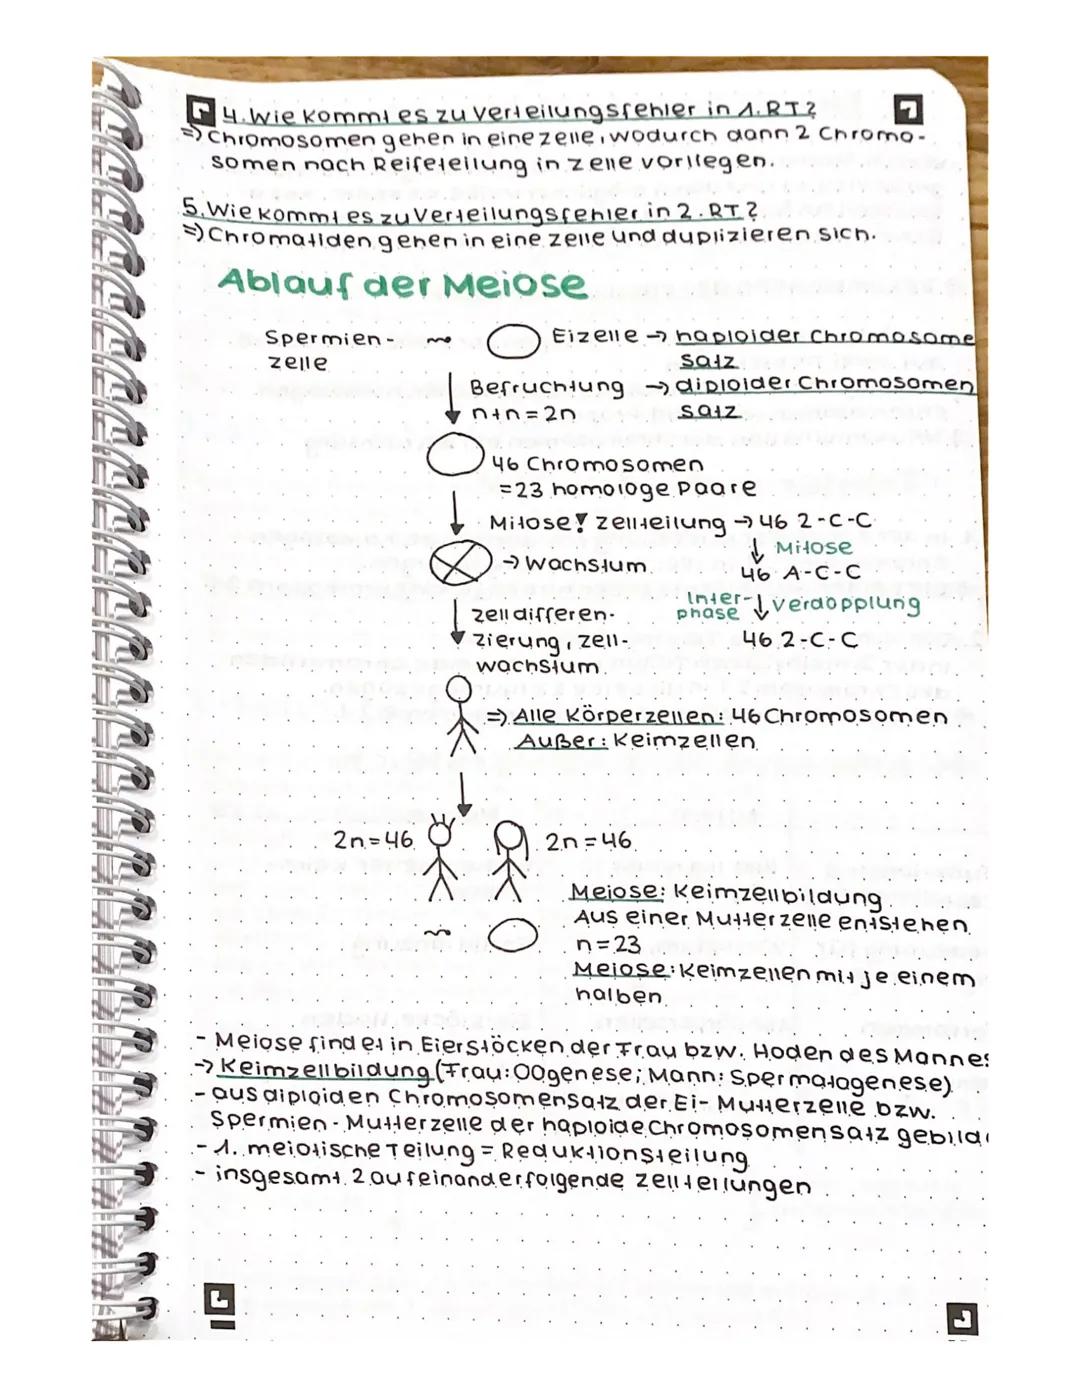 4. Wie kommt es zu Verteilungsfehler in 1. RT?
=> Chromosomen gehen in eine Zelle, wodurch dann 2 Chromo-
somen nach Reifeteilung in Zelle vorliegen.
5. Wie kommt es zu Verteilungsfehler in 2. RT?
=> Chromatiden gehen in eine Zelle und duplizieren sich.
Ablauf der Meiose
Spermien-
zelle
Eizelle → haploider Chromosome
satz
Befruchtung → diploider Chromosomen
n+n=2n satz
46 Chromosomen
=23 homologe Paare
Mitose! Zellteilung → 46 2-C-C
↓ Mitose
→ Wachstum 46 1-C-C
Inter-
phase ↓ Verdopplung
Zelldifferen-
zierung, Zell- 46 2-C-C
wachstum
=> Alle Körperzellen: 46 Chromosomen
Außer: Keimzellen
2n=46 2n=46
Meiose: Keimzellbildung
Aus einer Mutterzelle entstehen
n=23
Meiose: Keimzellen mit je einem
halben
- Meiose findet in Eierstöcken der Frau bzw. Hoden des Mannes
→ Keimzellbildung (Frau: Oogenese; Mann: Spermatogenese)
- aus diploiden Chromosomensatz der Ei-Mutterzelle bzw.
Spermien-Mutterzelle der haploide Chromosomensatz gebild
- 1. meiotische Teilung = Reduktionsteilung
- insgesamt 2 aufeinanderfolgende Zellteilungen